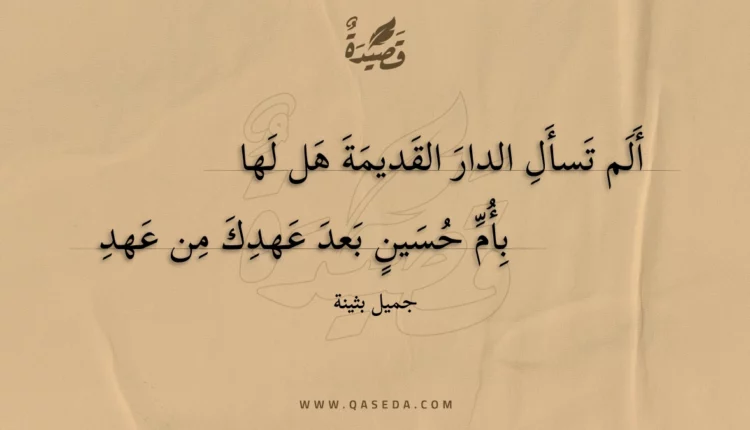 قَصِيدَةٌ
أَلَم تَسأَلِ الدارَ القَديمَةَ هَل لَها
بِأُمِّ حُسَينٍ بَعدَ عَهدِكَ مِن عَهدِ
جميل بثينة
WWW.QASEDA.COM